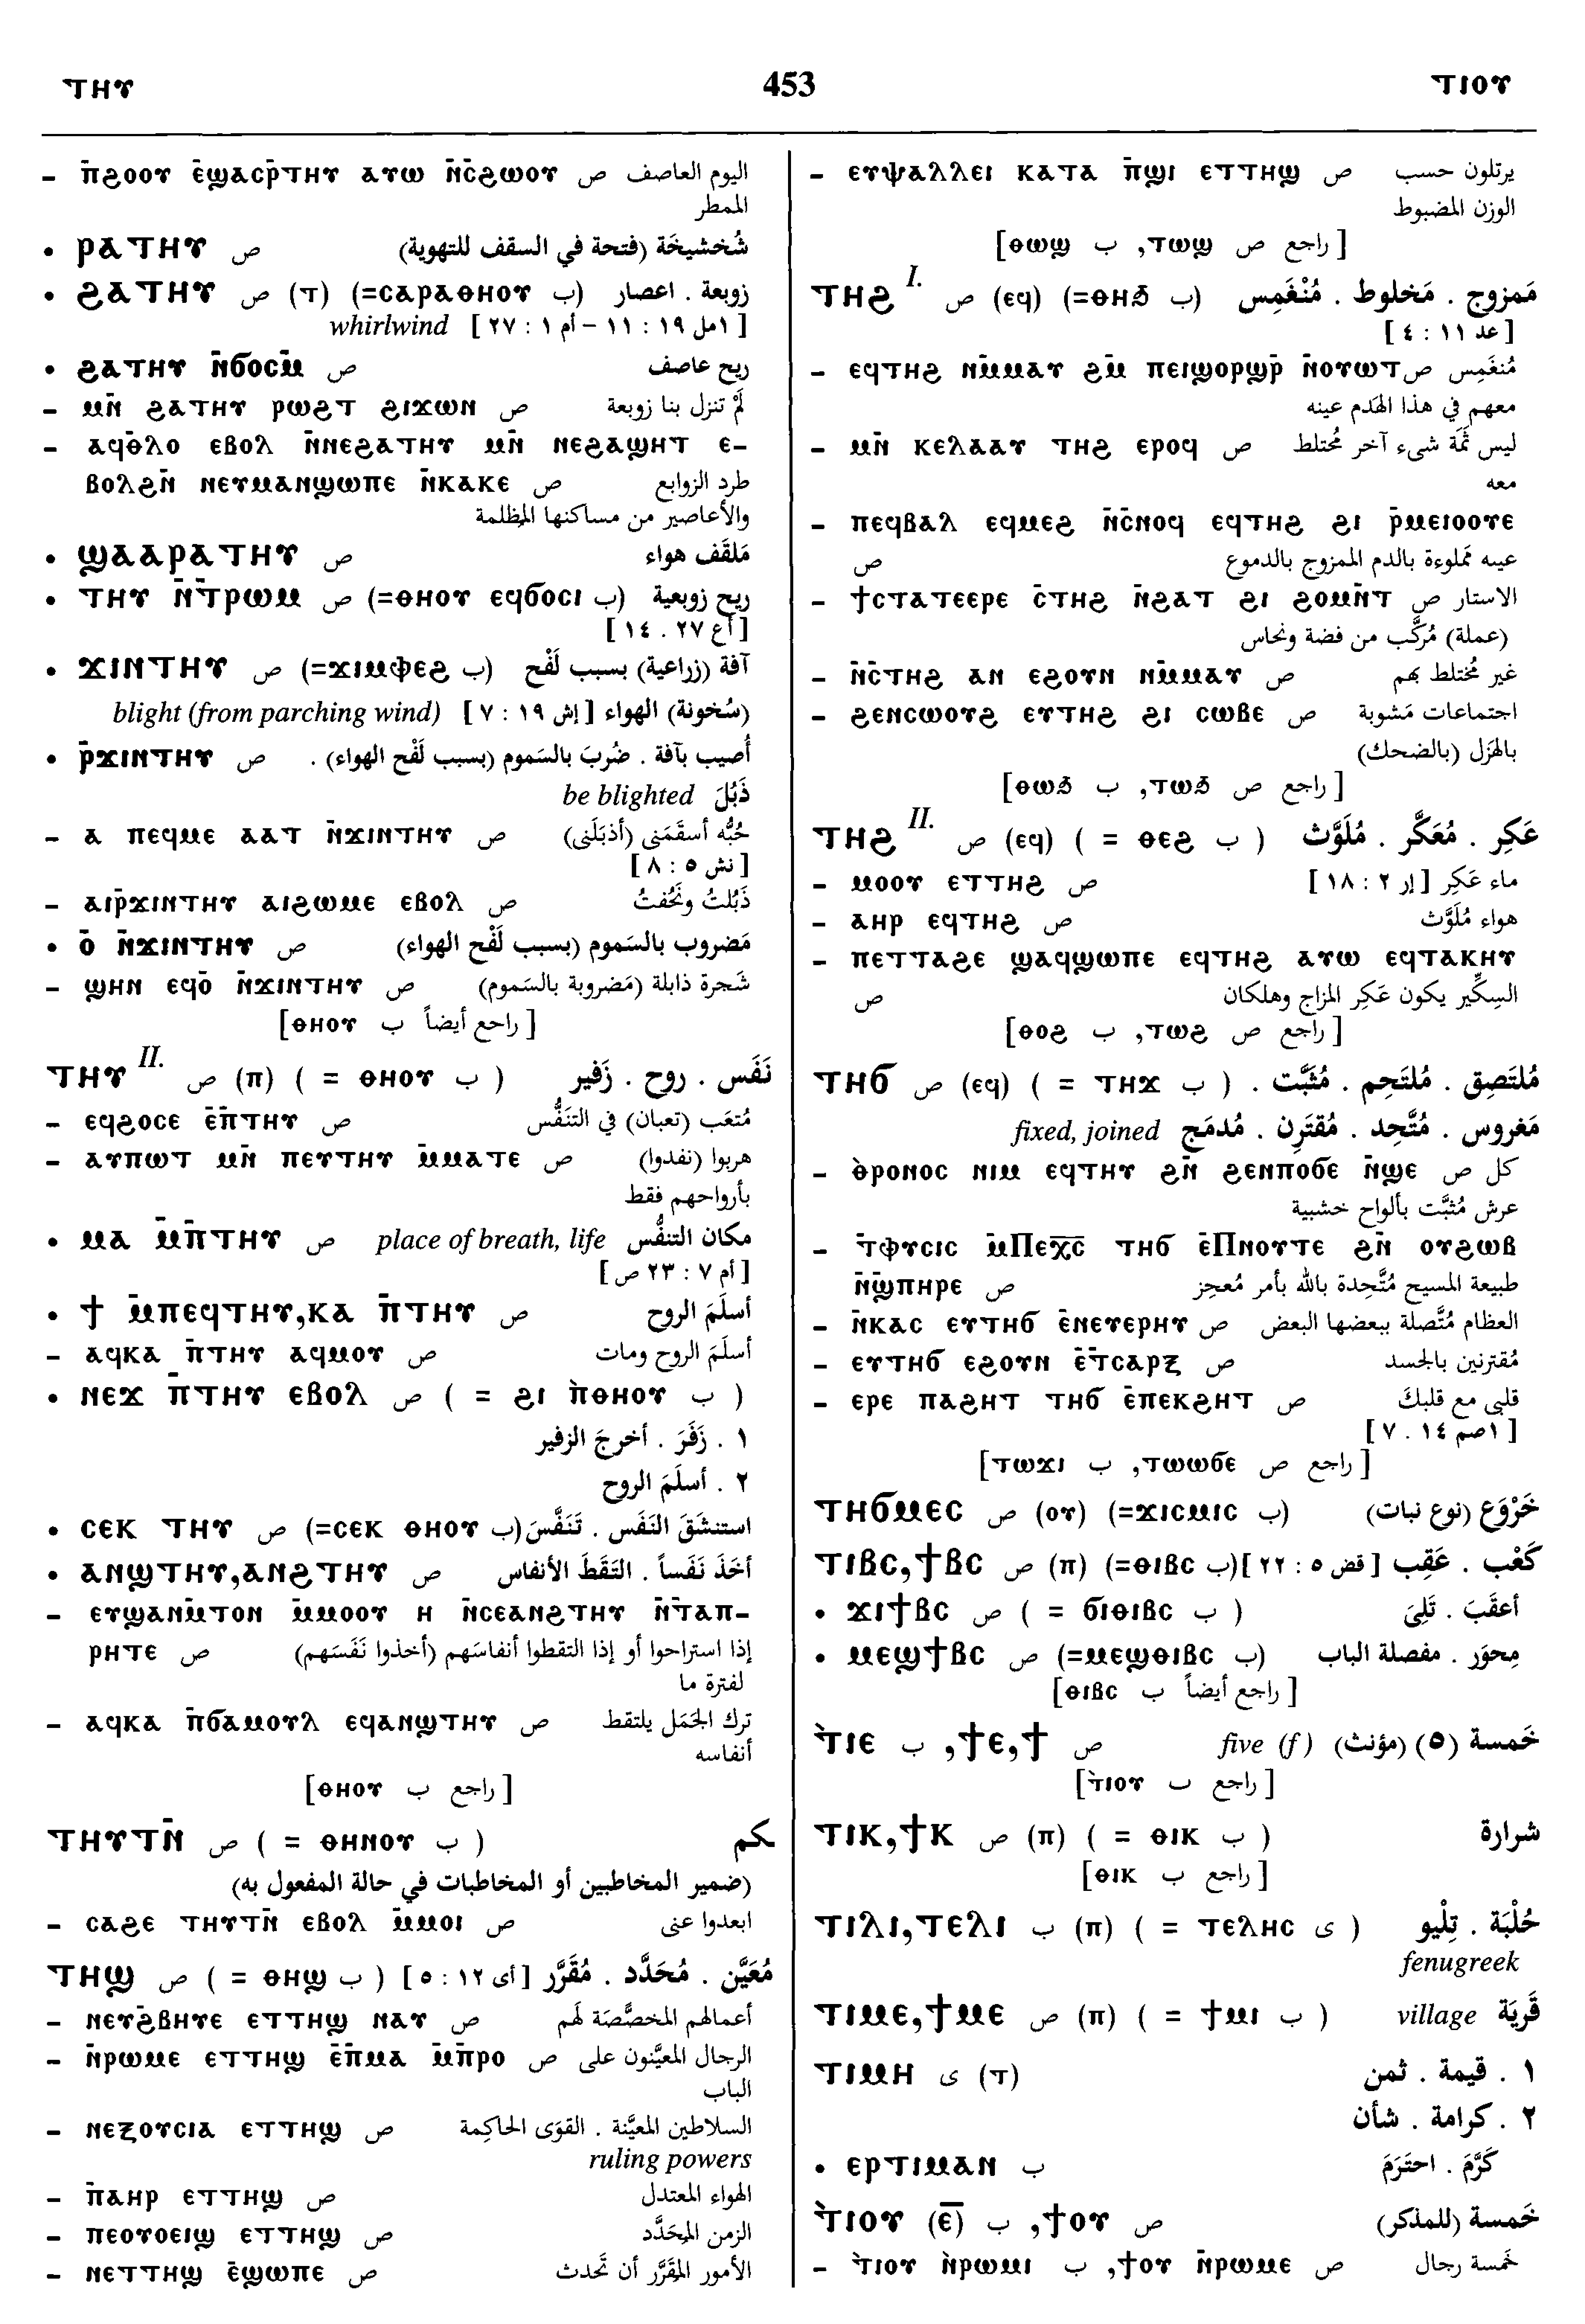 ⲧⲏⲩ 453 ⲧⲓⲟⲩ
– ⲡ̄ϩⲟⲟⲩ ⲉ̄ϣⲁⲥⲣ̄ⲧⲏⲩ ⲁⲩⲱ ⲛ̄ⲥ̄ϩⲱⲟⲩ ص اليوم العاصف
الممطر
• ⲣⲁⲧⲏⲩ ص شُخشيخَة (فتحة في السقف للتهوية)
• ϩⲁⲧⲏⲩ ص (ⲧ) (=ⲥⲁⲣⲁⲑⲏⲟⲩ ب) زوبعة . اعصار
[ ١مل ١٩ : ١١ – أم ١ : ٢٧ ] whirlwind
• ϩⲁⲧⲏⲩ ⲛ̄ϭⲟⲥⲙ̄ ص ريح عاصف
– ⲙⲛ̄ ϩⲁⲧⲏⲩ ⲣⲱϩⲧ ϩⲓϫⲱⲛ ص لَمْ تنزل بنا زوبعة
– ⲁϥⲑ̄ⲗⲟ ⲉⲃⲟⲗ ⲛ̄ⲛⲉϩⲁⲧⲏⲩ ⲙⲛ̄ ⲛⲉϩⲁϣⲏⲧ ⲉ–
ⲃⲟⲗϩⲛ̄ ⲛⲉⲩⲙⲁⲛϣⲱⲡⲉ ⲛ̄ⲕⲁⲕⲉ ص طرد الزوابع
والأعاصير من مساكنها المظلمة
• ϣⲁⲁⲣⲁⲧⲏⲩ ص مَلقَف هواء
• ⲧⲏⲩ ⲛ̄ⲧ̄ⲣⲱⲙ ص (=ⲑⲏⲟⲩ ⲉϥϭⲟⲥⲓ ب) ريح زوبعية
[ أع ٢٧ . ١٤ ]
• ϫⲓⲛⲧⲏⲩ ص (=ϫⲓⲙⲫⲉϩ ب) آفة (زراعية) بسبب لَفْح
(سُخونة) الهواء [ إش ١٩ : ٧ ] blight (from parching wind)
• ⲣ̄ϫⲓⲛⲧⲏⲩ ص أُصيب بآفة . ضُرِبَ بالسَموم (بسبب لَفْح الهواء) .
ذَبُلَ be blighted
– ⲁ ⲡⲉϥⲙⲉ ⲁⲁⲧ ⲛ̄ϫⲓⲛⲧⲏⲩ ص حُبُّه أسقَمَنى (أذبَلَنى)
[ نش ٥ : ٨ ]
– ⲁⲓⲣ̄ϫⲓⲛⲧⲏⲩ ⲁⲓϩⲱⲙⲉ ⲉⲃⲟⲗ ص ذَبُلتُ ونَحُفتُ
• ⲟ̄ ⲛ̄ϫⲓⲛⲧⲏⲩ ص مَضروب بالسَموم (بسبب لَفْح الهواء)
– ϣⲏⲛ ⲉϥⲟ̄ ⲛ̄ϫⲓⲛⲧⲏⲩ ص شَجرة ذابلة (مَضروبة بالسَموم)
[ راجع أيضاً ب ⲑⲏⲟⲩ]
ⲧⲏⲩ II. ص (ⲡ) ( = ⲑⲏⲟⲩ ب ) نَفَس . روح . زَفير
– ⲉϥϩⲟⲥⲉ ⲉ̄ⲡ̄ⲧⲏⲩ ص مُتعَب (تعبان) في التنَفُّس
– ⲁⲩⲡⲱⲧ ⲙⲛ̄ ⲡⲉⲩⲧⲏⲩ ⲙ̄ⲙⲁⲧⲉ ص هربوا (نفدوا)
بأرواحهم فقط
• ⲙⲁ ⲙ̄ⲡ̄ⲧⲏⲩ ص place of breath, life مكان التنفُّس
[ أم ٧ : ٢٣ ص ]
• ϯ ⲙ̄ⲡⲉϥⲧⲏⲩ,ⲕⲁ ⲡ̄ⲧⲏⲩ ص أسلَمَ الروح
– ⲁϥⲕⲁ ⲡ̄ⲧⲏⲩ ⲁϥⲙⲟⲩ ص أسلَمَ الروح ومات
• ⲛⲉϫ ⲡ̄ⲧⲏⲩ ⲉⲃⲟⲗ ص ( = ϩⲓ ⲡ̀ⲑⲏⲟⲩ ب )
١ . زَفَرَ . أخرجَ الزفير
٢ . أسلَمَ الروح
• ⲥⲉⲕ ⲧⲏⲩ ص (=ⲥⲉⲕ ⲑⲏⲟⲩ ب) استنشَقَ النَفَس . تَنَفَّسَ
• ⲁⲛϣⲧⲏⲩ,ⲁⲛϩⲧⲏⲩ ص أخَذَ نَفَساً . التَقَطَ الأنفاس
– ⲉⲩϣⲁⲛⲙ̄ⲧⲟⲛ ⲙ̄ⲙⲟⲟⲩ ⲏ ⲛ̄ⲥⲉⲁⲛϩⲧⲏⲩ ⲛ̄ⲧⲁⲡ–
ⲣⲏⲧⲉ ص إذا استراحوا أو إذا التقطوا أنفاسَهم (أخذوا نَفَسَهم)
لفترة ما
– ⲁϥⲕⲁ ⲡ̄ϭⲁⲙⲟⲩⲗ ⲉϥⲁⲛϣⲧⲏⲩ ص ترك الجَمَل يلتقط
أنفاسه
[ راجع ب ⲑⲏⲟⲩ]
ⲧⲏⲩⲧⲛ̄ ص ( = ⲑⲏⲛⲟⲩ ب ) ـكم
(ضمير المخاطبين أو المخاطبات في حالة المفعول به)
– ⲥⲁϩⲉ ⲧⲏⲩⲧⲛ̄ ⲉⲃⲟⲗ ⲙ̄ⲙⲟⲓ ص ابعدوا عنى
ⲧⲏϣ ص ( = ⲑⲏϣ ب ) مُعَيَّن . مُحَدَّد . مُقَرَّر [ أى ١٢ : ٥ ]
– ⲛⲉⲩϩ̄ⲃⲏⲩⲉ ⲉⲧⲧⲏϣ ⲛⲁⲩ ص أعمالهم المخصَّصَة لهم
– ⲛ̄ⲣⲱⲙⲉ ⲉⲧⲧⲏϣ ⲉ̄ⲡ̄ⲙⲁ ⲙ̄ⲡ̄ⲣⲟ ص الرجال المعيَّنون على
الباب
– ⲛⲉⲝⲟⲩⲥⲓⲁ ⲉⲧⲧⲏϣ ص السلاطين المعيَّنة . القوَى الحاكِمة
ruling powers
– ⲡ̄ⲁⲏⲣ ⲉⲧⲧⲏϣ ص الهواء المعتدل
– ⲡⲉⲟⲩⲟⲉⲓϣ ⲉⲧⲧⲏϣ ص الزمن المحَدَّد
– ⲛⲉⲧⲧⲏϣ ⲉ̄ϣⲱⲡⲉ ص الأمور المقَرَّر أن تَحدث
– ⲉⲩⲯⲁⲗⲗⲉⲓ ⲕⲁⲧⲁ ⲡ̄ϣⲓ ⲉⲧⲧⲏϣ ص يرتلون حسب
الوزن المضبوط
[ راجع ص ⲧⲱϣ, ب ⲑⲱϣ]
ⲧⲏϩ I. ص (ⲉϥ) (=ⲑⲏϧ ب) مَمزوج . مَخلوط . مُنْغَمِس
[ عد ١١ : ٤ ]
– ⲉϥⲧⲏϩ ⲛⲙ̄ⲙⲁⲩ ϩⲙ̄ ⲡⲉⲓϣⲟⲣϣⲣ̄ ⲛ̄ⲟⲩⲱⲧ ص مُنغَمِس
معهم في هذا الهَدم عينه
– ⲙⲛ̄ ⲕⲉⲗⲁⲁⲩ ⲧⲏϩ ⲉⲣⲟϥ ص ليس ثَمَّة شىء آخر مُختلط
معه
– ⲡⲉϥⲃⲁⲗ ⲉϥⲙⲉϩ ⲛ̄ⲥ̄ⲛⲟϥ ⲉϥⲧⲏϩ ϩⲓ ⲣ̄ⲙⲉⲓⲟⲟⲩⲉ
ص عينه مملوءة بالدم الممزوج بالدموع
– ϯⲥⲧⲁⲧⲉⲉⲣⲉ ⲥ̄ⲧⲏϩ ⲛ̄ϩⲁⲧ ϩⲓ ϩⲟⲙⲛ̄ⲧ ص الاستار
(عملة) مُركَّب من فضة ونحاس
– ⲛ̄ⲥ̄ⲧⲏϩ ⲁⲛ ⲉϩⲟⲩⲛ ⲛⲙ̄ⲙⲁⲩ ص غير مُختلط بهم
– ϩⲉⲛⲥⲱⲟⲩϩ ⲉⲩⲧⲏϩ ϩⲓ ⲥⲱⲃⲉ ص اجتماعات مَشوبة
بالهَزل (بالضحك)
[ راجع ص ⲧⲱϧ, ب ⲑⲱϧ]
ⲧⲏϩ II. ص (ⲉϥ) ( = ⲑⲉϩ ب ) عَكِر . مُعَكَّر . مُلَوَّث
– ⲙⲟⲟⲩ ⲉⲧⲧⲏϩ ص ماء عَكِر [ إر ٢ : ١٨ ]
– ⲁⲏⲣ ⲉϥⲧⲏϩ ص هواء مُلَوَّث
– ⲡⲉⲧⲧⲁϩⲉ ϣⲁϥϣⲱⲡⲉ ⲉϥⲧⲏϩ ⲁⲩⲱ ⲉϥⲧⲁⲕⲏⲩ
ص السِكِّير يكون عَكِر المزاج وهلكان
[ راجع ص ⲧⲱϩ, ب ⲑⲟϩ]
ⲧⲏϭ ص (ⲉϥ) ( = ⲧⲏϫ ب ) . مُلتَصِق . مُلتَحِم . مُثبَّت
مَغروس . مُتَّحِد . مُقتَرِن . مُدمَج fixed, joined
– ⲑ̀ⲣⲟⲛⲟⲥ ⲛⲓⲙ ⲉϥⲧⲏⲩ ϩⲛ̄ ϩⲉⲛⲡⲟϭⲉ ⲛ̄ϣⲉ ص كل
عرش مُثبَّت بألواح خشبية
– ⲧ̄ⲫⲩⲥⲓⲥ ⲙ̄Ⲡⲉⲭ̅ⲥ̅ ⲧⲏϭ ⲉ̄Ⲡⲛⲟⲩⲧⲉ ϩⲛ̄ ⲟⲩϩⲱⲃ
ⲛ̄ϣ̄ⲡⲏⲣⲉ ص طبيعة المسيح مُتَّحِدة بالله بأمر مُعجِز
– ⲛ̄ⲕⲁⲥ ⲉⲩⲧⲏϭ ⲉ̄ⲛⲉⲩⲉⲣⲏⲩ ص العظام مُتَّصلة ببعضها البعض
– ⲉⲩⲧⲏϭ ⲉϩⲟⲩⲛ ⲉ̄ⲧ̄ⲥⲁⲣⲝ ص مُقترنين بالجسد
– ⲉⲣⲉ ⲡⲁϩⲏⲧ ⲧⲏϭ ⲉ̄ⲡⲉⲕϩⲏⲧ ص قلبى مع قلبكَ
[ ١صم ١٤ . ٧ ]
[ راجع ص ⲧⲱⲱϭⲉ, ب ⲧⲱϫⲓ]
ⲧⲏϭⲙⲉⲥ ص (ⲟⲩ) (=ϫⲓⲥⲙⲓⲥ ب) خَرْوَع (نوع نبات)
ⲧⲓⲃⲥ,ϯⲃⲥ ص (ⲡ) (=ⲑⲓⲃⲥ ب) كَعْب . عَقِب [ قض ٥ : ٢٢ ]
• ϫⲓϯⲃⲥ ص ( = ϭⲓⲑⲓⲃⲥ ب ) أعقَبَ . تَلِىَ
• ⲙⲉϣϯⲃⲥ ص (=ⲙⲉϣⲑⲓⲃⲥ ب) مِحوَر . مفصلة الباب
[ راجع أيضاً ب ⲑⲓⲃⲥ]
ⲧ̀ⲓⲉ ب ,ϯⲉ,ϯ ص خَمسة (٥) (مؤنث) five (f)
[ راجع ب ⲧ̀ⲓⲟⲩ]
ⲧⲓⲕ,ϯⲕ ص (ⲡ) ( = ⲑⲓⲕ ب ) شرارة
[ راجع ب ⲑⲓⲕ]
ⲧⲓⲗⲓ,ⲧⲉⲗⲓ ب (ⲡ) ( = ⲧⲉⲗⲏⲥ ى ) حُلْبَة . تِلْيو
fenugreek
ⲧⲓⲙⲉ,ϯⲙⲉ ص (ⲡ) ( = ϯⲙⲓ ب ) قَريَة village
ⲧⲓⲙⲏ ى (ⲧ) ١ . قيمة . ثمن
٢ . كرامة . شأن
• ⲉⲣⲧⲓⲙⲁⲛ ب كَرَّمَ . احتَرَمَ
ⲧ̀ⲓⲟⲩ (ⲉ̅) ب ,ϯⲟⲩ ص خَمسة (للمذكر)
– ⲧ̀ⲓⲟⲩ ⲛ̀ⲣⲱⲙⲓ ب ,ϯⲟⲩ ⲛ̄ⲣⲱⲙⲉ ص خمسة رجال